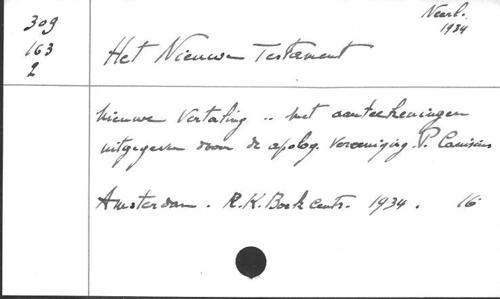 309
163
2
Neerl.
1934
Het Nieuwe Testament
Nieuwe Vertaling .. met aanteekeningen
uitgegeven door de apolog. Vereeniging P. Canisius
Amsterdam. R.K. Boekcentr. 1934. 16